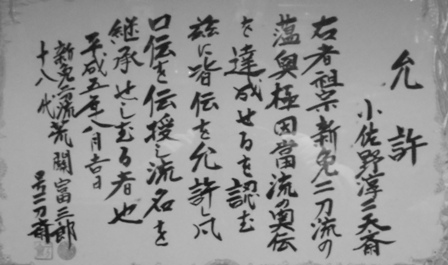 允許
小佐野淳二天斎
右者祖宗新免二刀流の
蘊奥極因當流の奥伝
を達成せるを認む
茲に皆伝を允許し
口伝を伝授し流名を
継承せしむる者也
平成五年八月吉日
新免二流荒關富三郎
十八代 号二刀斎